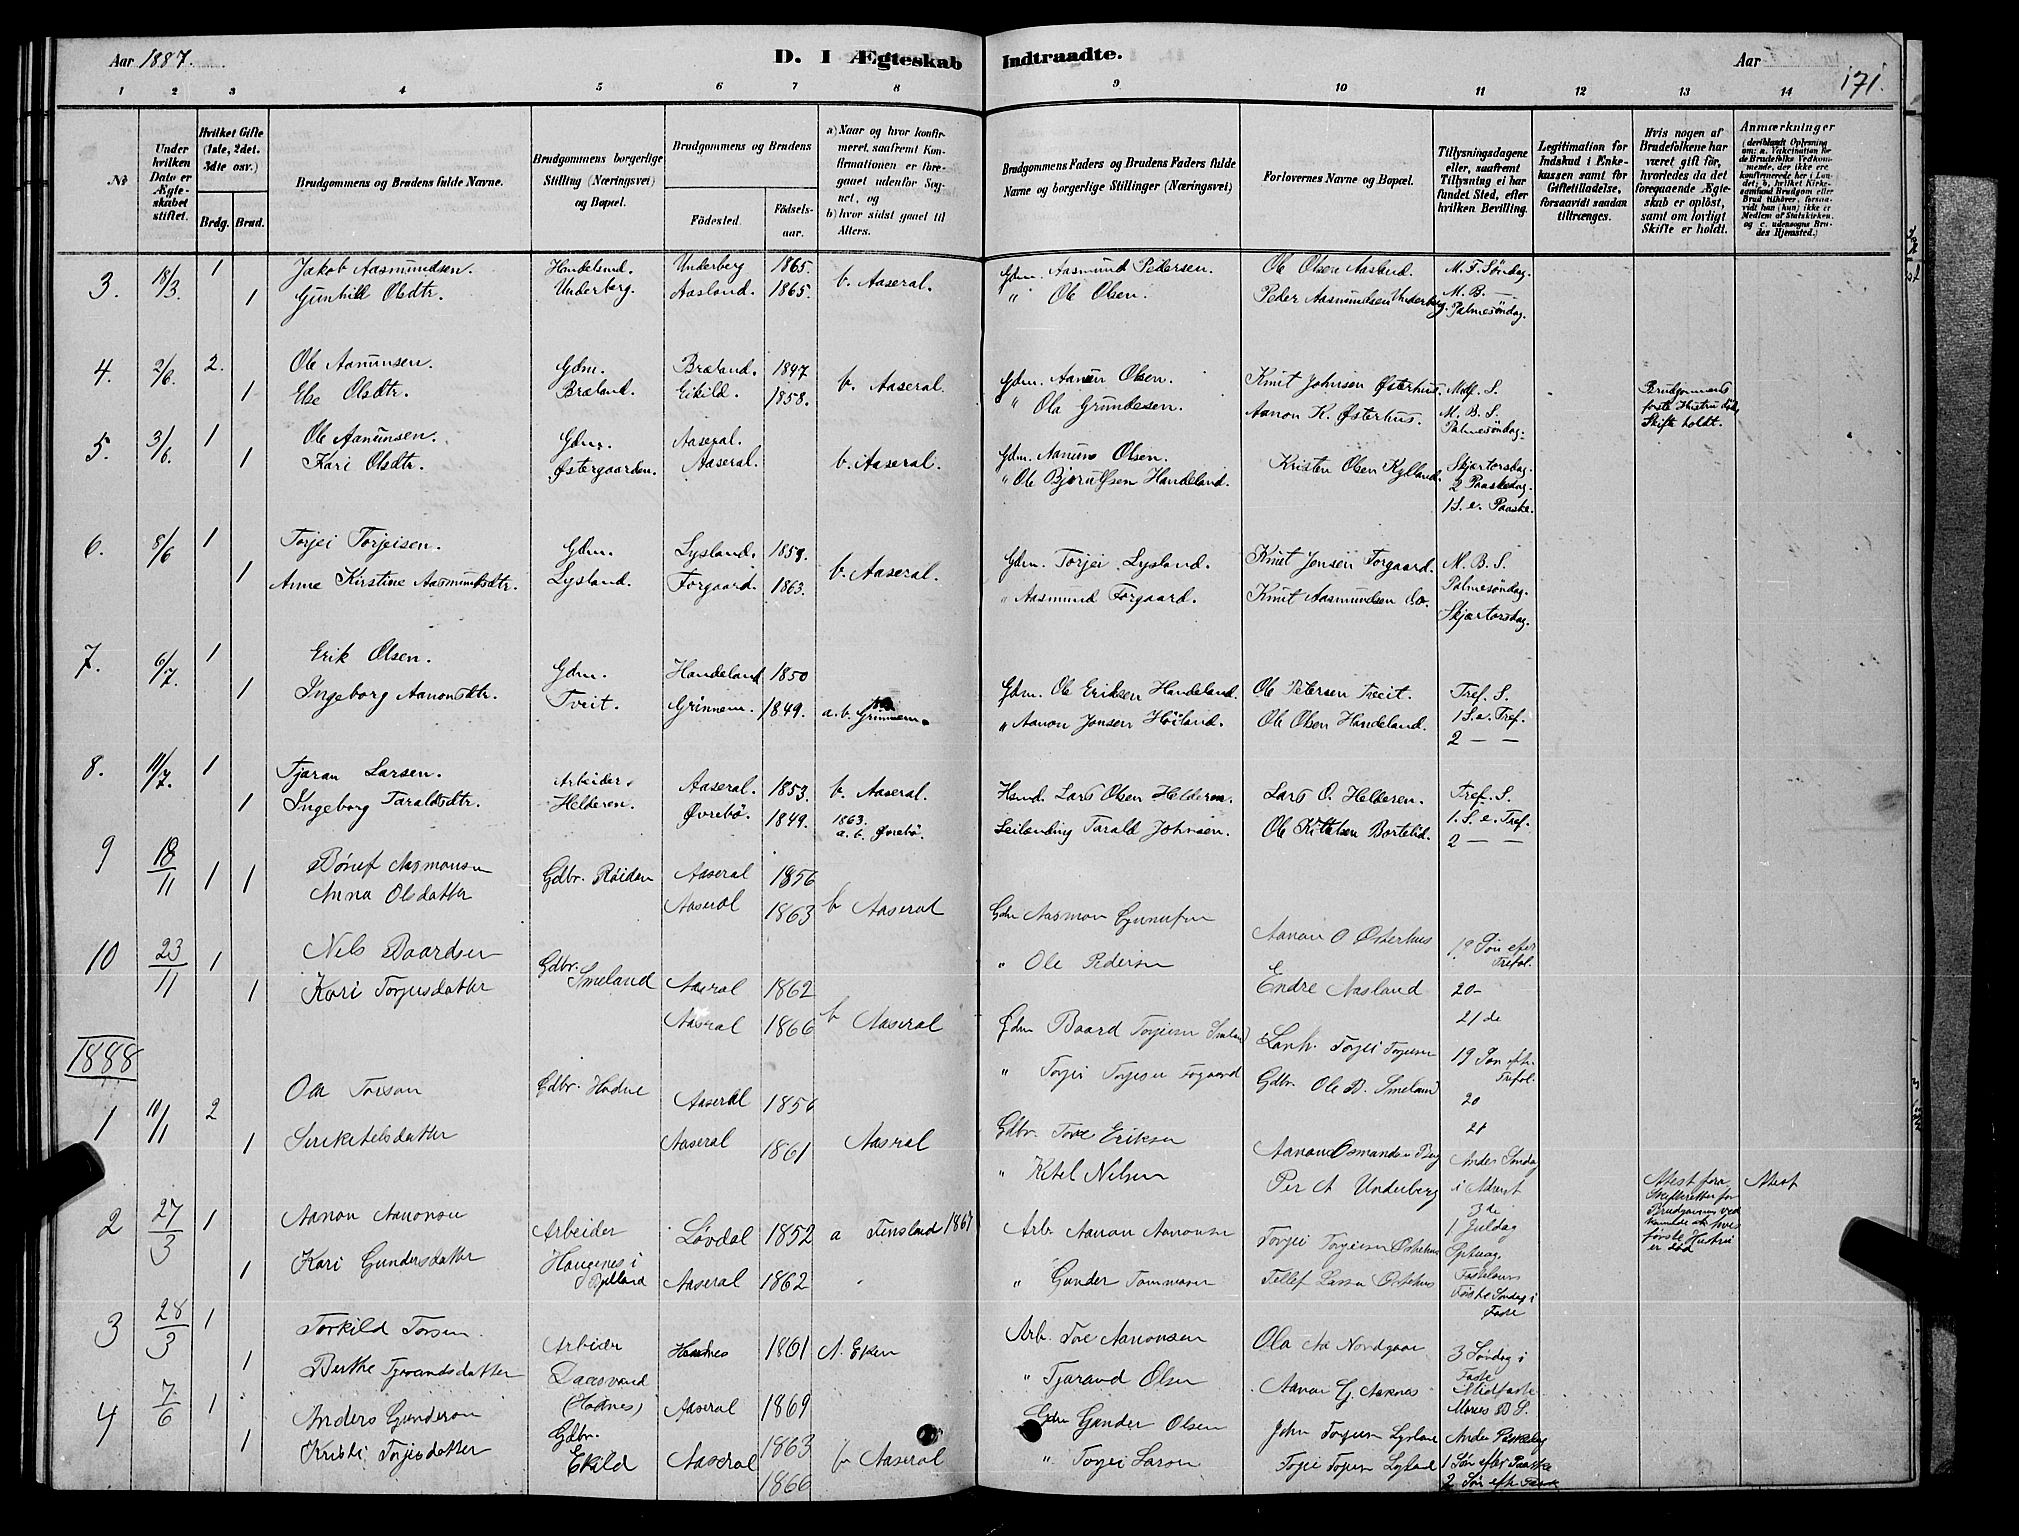 Aar 1887.
D. I Ægteskab Indtraadte.
Aar
171.
1 2 3 4 5 6 7 8 9 10 11 12 13 14
No
Under hvilken Dato er Ægteskabet stiftet.
Hvilket Gifte (1ste, 2det, 3dte osv.)
Brdg. Brud.
Brudgommens og Brudens fulde Navne.
Brudgommens borgerlige Stilling (Næringsvei) og Bopæl.
Brudgommens og Brudens
Födested.
Födselsaar.
a) Naar og hvor konfirmeret, saafremt Konfirmationen er foregaaet udenfor Sognet, og
b) hvor sidst gaaet til Alters.
Brudgommens Faders og Brudens Faders fulde Navne og borgerlige Stillinger (Næringsvei)
Forlovernes Navne og Bopæl.
Tillysningsdagene eller, saafremt Tillysning ei har fundet Sted, efter hvilken Bevilling.
Legitimation for Indskud i Enkekassen samt for Giftetilladelse, forsaavidt saadan tiltrænges.
Hvis nogen af Brudefolkene har været gift för, hvorledes da det foregaaende Ægteskab er oplöst, samt om lovligt Skifte er holdt.
Anmærkninger
(deriblandt Oplysning om: a. Vaccination for de Brudefolks Vedkommende, der ikke ere konfirmerede her i Landet; b. hvilket Kirkesamfund Brudgom eller Brud tilhörer, forsaavidt han (hun) ikke er Medlem af Statskirken, og c. udensogns Brudes Hjemsted.)
3. 18/3 1 Jakob Aasmundsen. Handeland. Underberg 1865. b. Aaseral. Gdm. Aasmund Pedersen. Ole Olsen Aasland. M. F. Söndag.
1 Gunhild Olsdtr. Underberg. Aasland. 1865. " Ole Olsen. Peder Aasmundsen Underberg. M. B. —
Palmesöndag.
4. 2/6. 2. Ole Aanunsen. Gdm. Bræland. 1847. b. Aaseral. Gdm. Aanun Olsen. Knut Johnsen Østerhus. Mdf. S. Brudgommens
1 Else Olsdtr. Bræland. Eikild. 1858. " Ola Grundesen. Aanon K. Østerhus. M. B. S. første Hustru död,
Palmesöndag. Skifte holdt.
5. 3/6 1 Ole Aanunsen. Gdm. Aaseral. b. Aaseral. Gdm. Aanuns Olsen. Kristen Olsen Kylland. Skjærtorsdag.
1 Kari Olsdtr. Østergaarden. Aaseral. " Ole Bjørulfsen Handeland. 2 Paaskedag.
1 S. e. Paaske.
6. 8/6 1 Torjei Torjeisen. Gdm. Lysland. 1858. b. Aaseral. Gdm. Torjei Lysland. Knut Jonsen Forgaard. M. B. S.
1 Anne Kirstine Aasmundsdtr. Lysland. Forgaard. 1863. " Aasmund Forgaard. Knut Aasmundsen do. Palmesöndag.
Skjærtorsdag.
7. 6/7. 1 Erik Olsen. Gdm. Handeland 1850 Gdm. Ole Eriksen Handeland. Ole Petersen Tveit. Tref. S.
1 Ingeborg Aanonsdtr. Tveit. Grinnem. 1849. a. b. Grinnem. " Aanon Jonsen Höiland. Ole Olsen Handeland. 1 S. e. Tref.
2 — —
8. 11/7. 1 Tjøran Larsen. Arbeider. Aaseral. 1853. b. Aaseral. Husmd. Lars Olsen Helderen. Lars O. Helderen. Tref. S.
1 Ingeborg Taraldsdtr. Helderen. Øvrebö. 1849. 1863. a. b. Øvrebö. Leilending Tarald Johnsen. Ole Kittelsen Bortelid. 1. S. e. Tref.
2 — —
9 18/11 1 1 Aasmonsen Gdbr. Röiden Aaseral 1856
Anna Olsdatter Aaseral 1863 b Aaseral Gdm Aasmon Aanon O Østerhus 19 Søn efter Trefol.
10 23/11 1 Nils Baardsen Gdbr. Smeland Aaseral 1862 " Ole Pedersen Endre Aasland 20-
1 Kari Torjusdatter Aaseral 1866 b Aaseral Gdm Baard Torjusen Smeland Torjei Torjusen 21 de
1888 19 Søn eft. Trefol.
" Torjei Torjesen Fogaard Gdbr. Ole B. Smeland 20
1 10/1 2 Ole Torson Gdbr. Aaseral 1856 Gdbr. Tore Eriksen 21
1 Aaseral 1861 Aaseral " Ketel Nilsen Aanon Per A Underberg Anden Søndag i Advent 3 de Attest fra Skifteretten for Brudgommens ved kommende at hans første Hustru er død Attest
2 27/3 1 Aanon Aanonsen Arbeider Løvdal 1852 a Finsland 1867 Arb. Aanon Aanonsen Torjei Torjusen Østerhus 1 Juledag
1 Kari Gundersdatter Haugenes i Bjelland Aaseral 1862 " Gunder Tommasen Tellef Larsen Østerhus Fastelavn Første Søndag i Faste
3 28/3 1 Torkild Torsen. Arbeider 1861 A. Eken Arb. Tore Aanonsen Ola Aa Nordgaar 3 Søndag i Faste
1 Berthe Tjørandsdatter (Hodnes) Aaseral 1869 " Tjørand Olsen Aanon G. Aaknes Midfaste Maries B S.
4 7/6 1 Anders Gunderson Gdbr. Ekild 1863 Gdm Gunder Olsen John Torjusen Lysland Anden Paaskedag
1 Kristi Torjesdatter Aaseral 1866 b Aaseral " Torjei Larson Torjei Torjusen Lysland 1 Søn efter Paaske
2 Søn eft Paaske